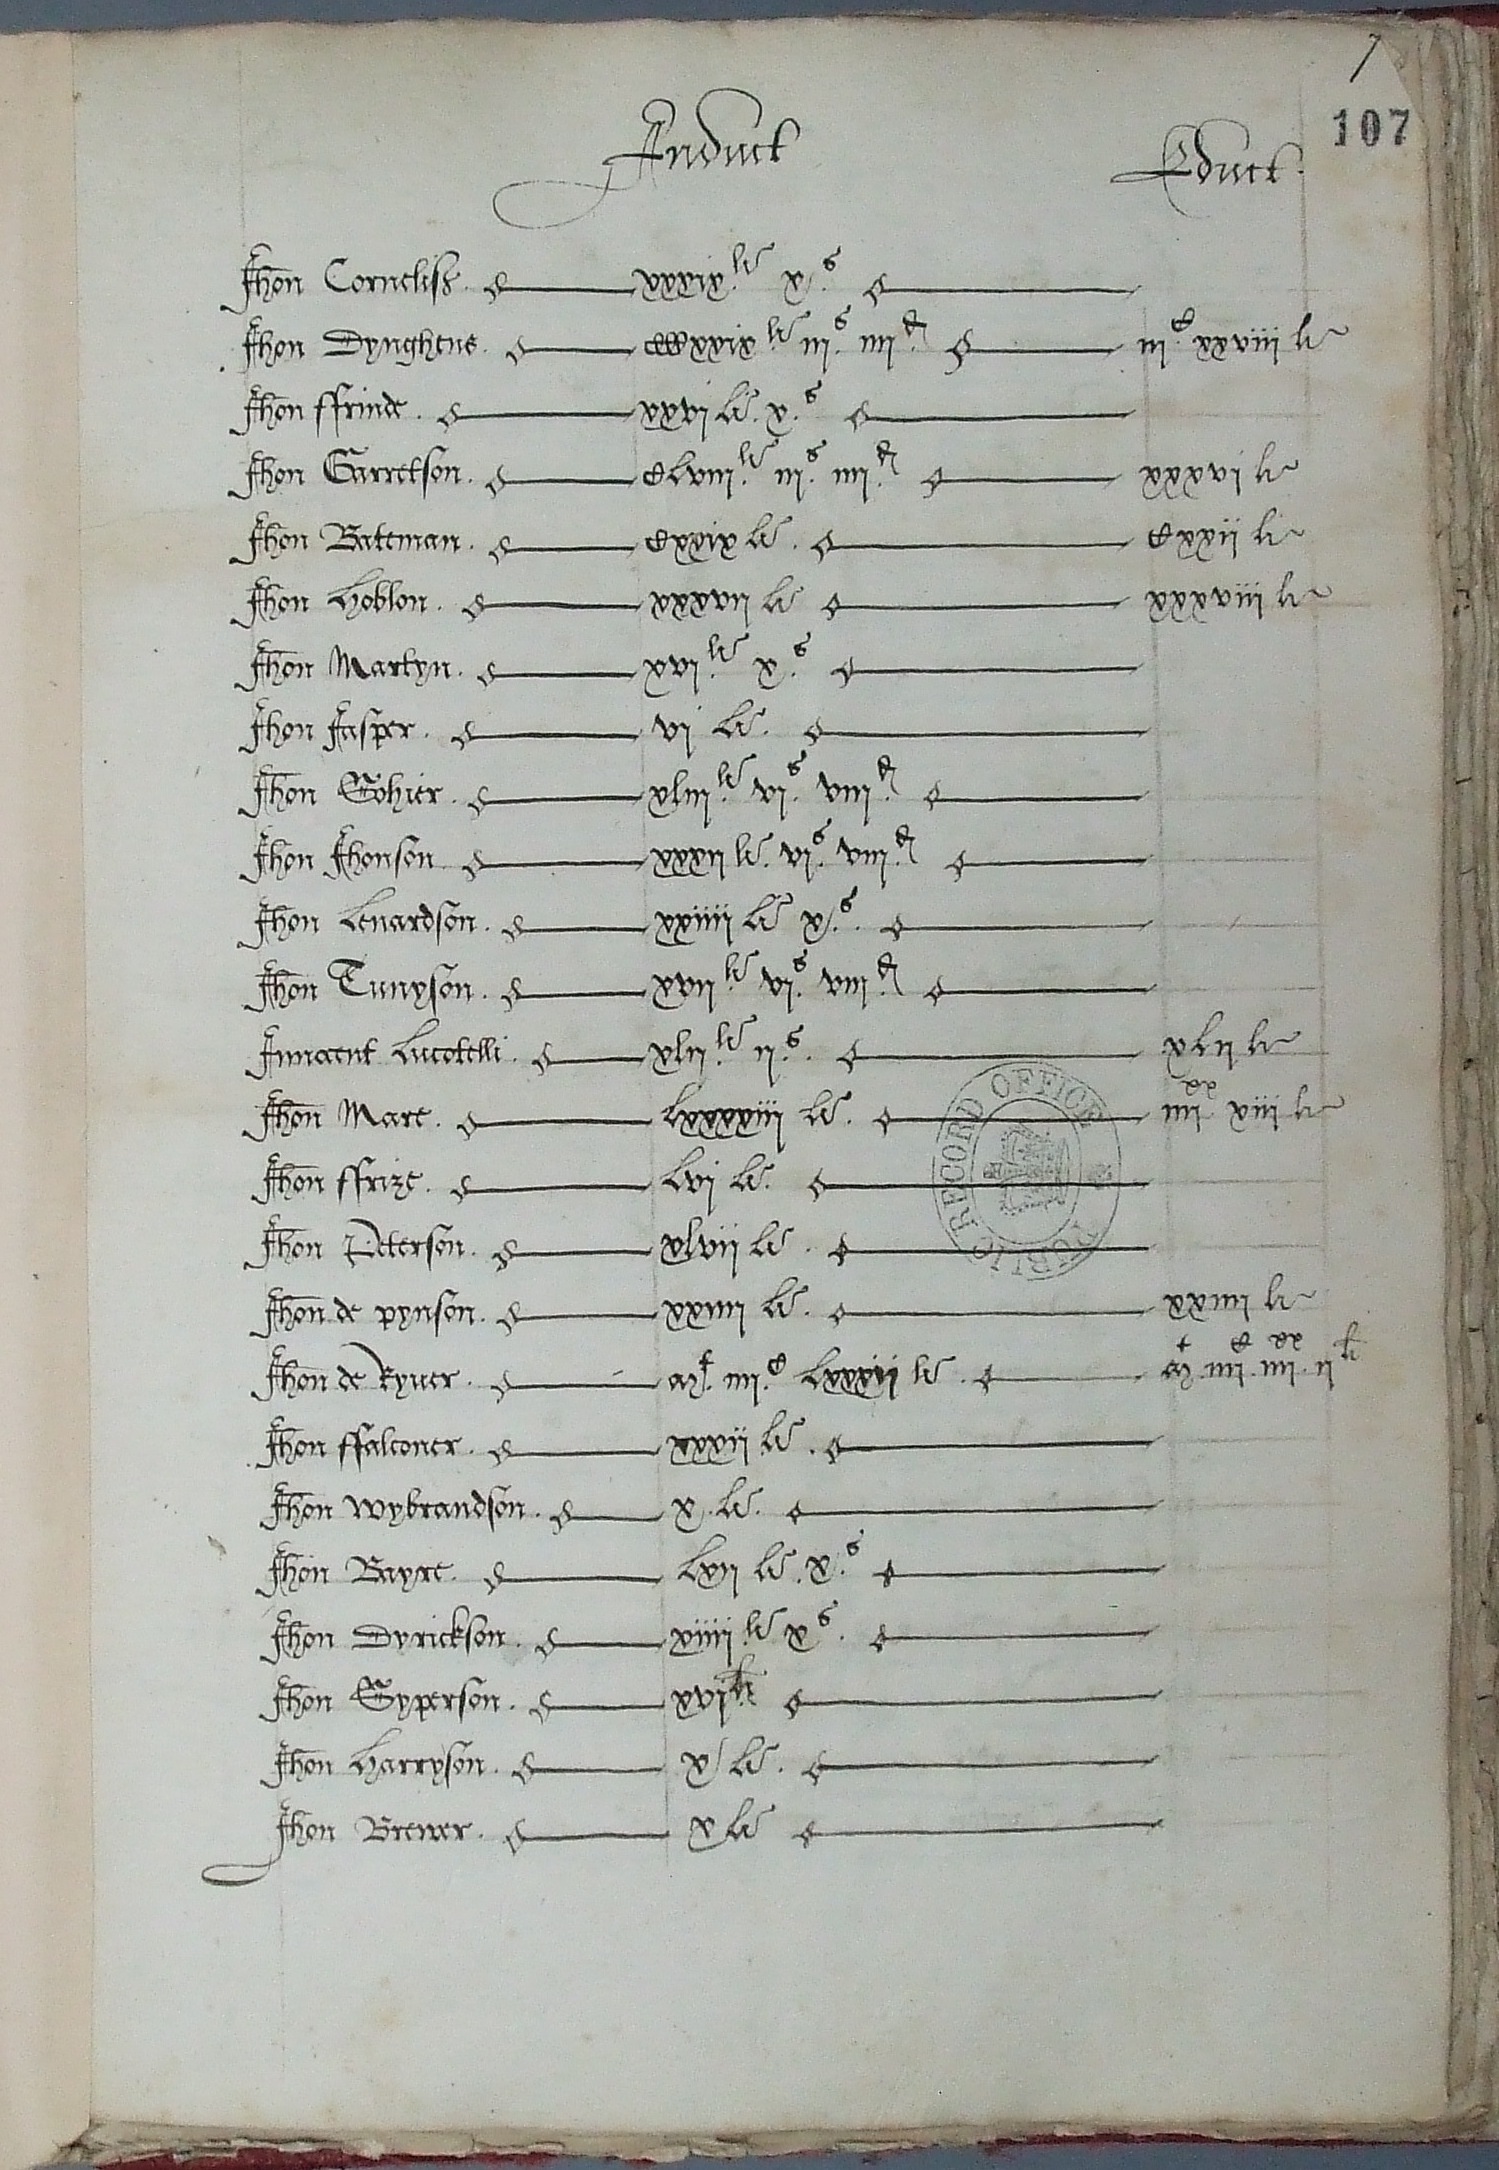 7
107
Induct Educt.
Jhon Cornelisz. xxxix li x s
Jhon Dynghens. CCCxxix li iii s iiii d iii C xxviii li
Jhon ffrinde. xxvi li x s
Jhon Garretson. Clviii li iii s iiii d xxxvi li
Jhon Bateman. Cxxix li Cxxii li
Jhon Hoblon. xxxvii li xxxviii li
Jhon Martyn. xvi li x s
Jhon Jasper. vi li
Jhon Gohier. xliii li vi s viii d
Jhon Jhonson xxxii li vi s viii d
Jhon Lenardson. xxiiii li x s
Jhon Tunyson. xvii li vi s viii d
Innocent Lucotelli. xlii li ii s xlii li
Jhon Mare. lxxxxiii li iiii xx xiii li
Jhon ffrize. lvi li
Jhon Peterson. xlvii li
Jhon de pynson. xxiiii li xxiiii li
Jhon de Ryver. iiii C lxxxii li iiii C iiii xx ii li
Jhon ffalconer. xxxii li
Jhon wybrandson. x li
Jhon Bayre. lxii li x s
Jhon Dyrickson. xiiii li x s
Jhon Gyperson. xvi li
Jhon Harryson. x li
Jhon Brewer. x li
PUBLIC RECORD OFFICE